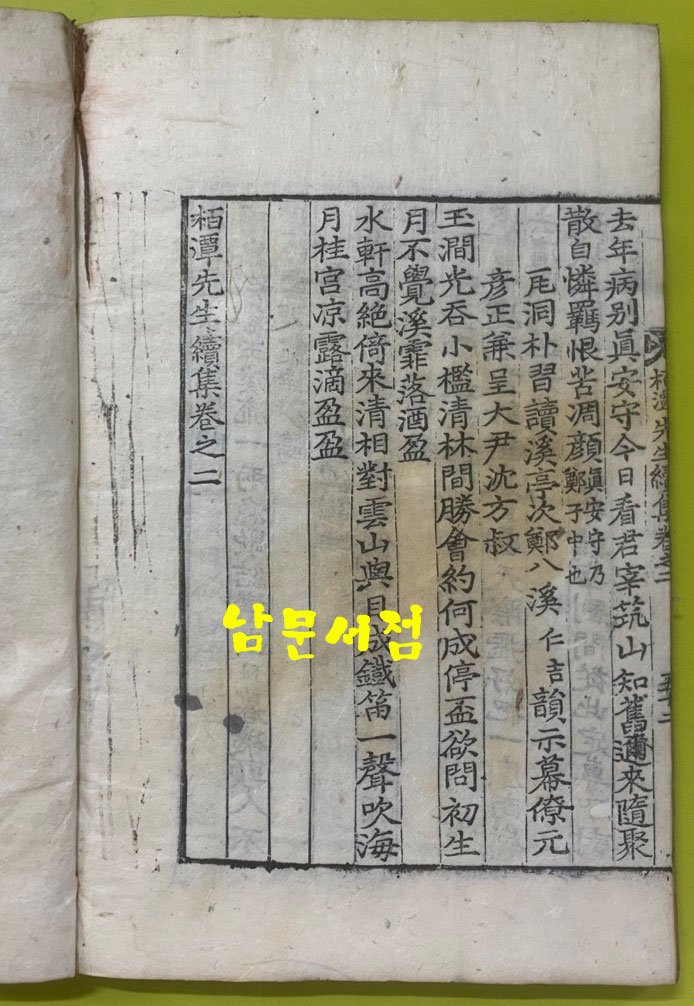 去年病別眞安守今日看君宰筑山知舊邇來隨聚
散自憐羈恨苦凋顔眞安守乃鄭子中也
厇洞朴習讀溪亭次鄭八溪仁吉韻示幕僚元
彦正兼呈大尹沈方叔
玉澗光呑小檻清林間勝會約何成停盃欲問初生
月不覺溪霏落酒盈
水軒高絶倚來清相對雲山與目成鐵笛一聲吹海
月桂宮凉露滴盈盈
栢潭先生續集卷之二
栢潭先生續集卷之二 五十二
남문서점